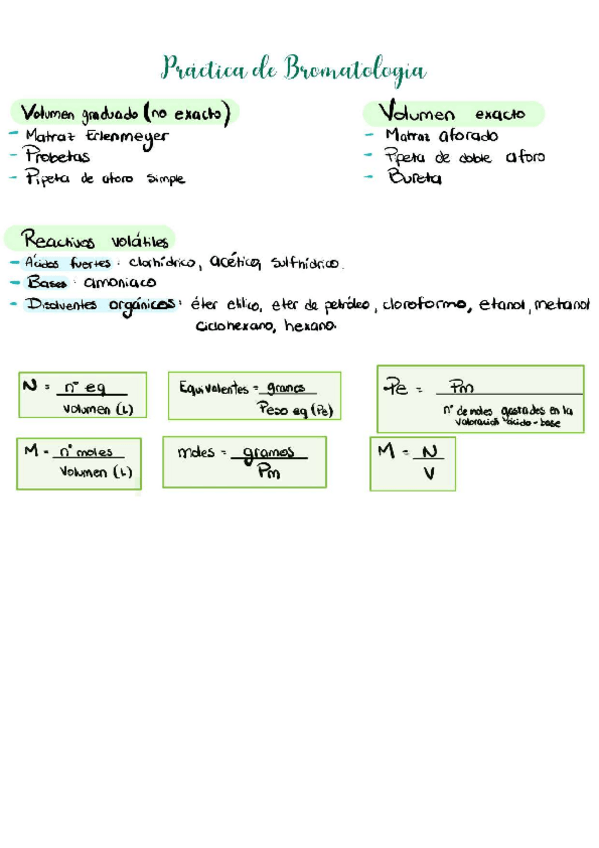 Práctica de Bromatología
Volumen graduado (no exacto)
- Matraz Erlenmeyer
- Probetas
- Pipeta de aforo simple
Volumen exacto
- Matraz aforado
- Pipeta de doble aforo
- Bureta
Reactivos volátiles
- Ácidos fuertes: clorhídrico, acético, sulfhídrico.
- Bases: amoniaco
- Disolventes orgánicos: éter etílico, eter de petróleo, cloroformo, etanol, metanol
ciclohexano, hexano.
N = nº eq
Volumen (L)
Equivalentes = gramos
Peso eq (Pe)
Pe = Pm
nº de moles gastades en la
valoración ácido-base
M = nº moles
Volumen (L)
moles = gramos
Pm
M = N
V